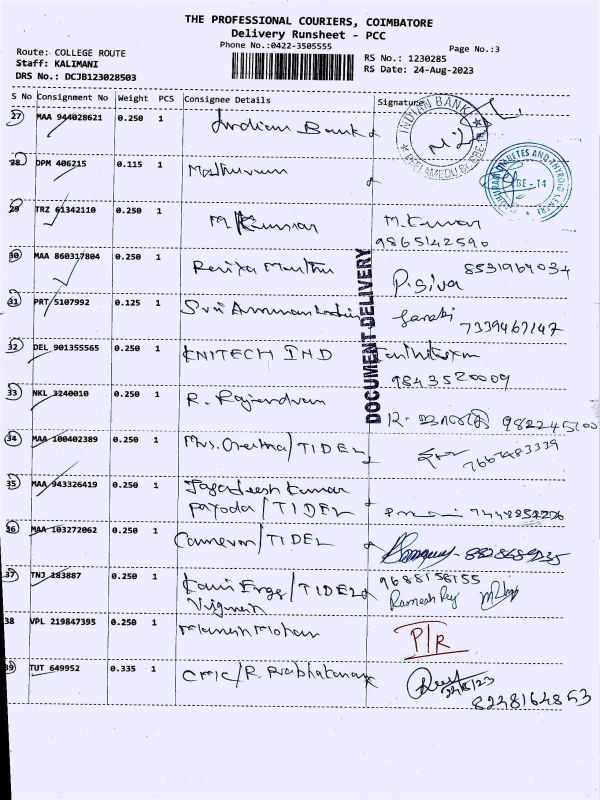 THE PROFESSIONAL COURIERS, COIMBATORE
Delivery Runsheet - PCC
Phone No.:0422-3505555
Page No.:3
Route: COLLEGE ROUTE
Staff: KALIMANI
DRS No.: DCJB123028503
RS No.: 1230285
RS Date: 24-Aug-2023
S No Consignment No Weight PCS Consignee Details Signature
27 MAA 944028621 0.250 1 Indian Bank
INDIAN BANK
28 DPM 406215 0.115 1 Mathuram
DIABETES AND THYROID
29 TRZ 61342110 0.250 1 M. Kumar M. Kumar
9865142590
30 MAA 860317804 0.250 1 P. Siva 8531964034
31 PRT 5107992 0.125 1 Sri Amman 7339467147
DOCUMENT DELIVERY
32 DEL 901355565 0.250 1 KNITECH IND
9843520009
33 NKL 3240010 0.250 1 R. Rajendran
34 MAA 100402389 0.250 1 Mrs. /TIDEL
7667483339
35 MAA 943326419 0.250 1 Jagadeesh Kumar
Payoda/TIDEL
36 MAA 103272062 0.250 1 Cameron/TIDEL
37 TNJ 183887 0.250 1 /TIDEL 9688158155
Vignesh Ramesh
38 VPL 219847395 0.250 1 Mohan P/R
39 TUT 649952 0.335 1 CMC/R. Prabhakaran
8248164853